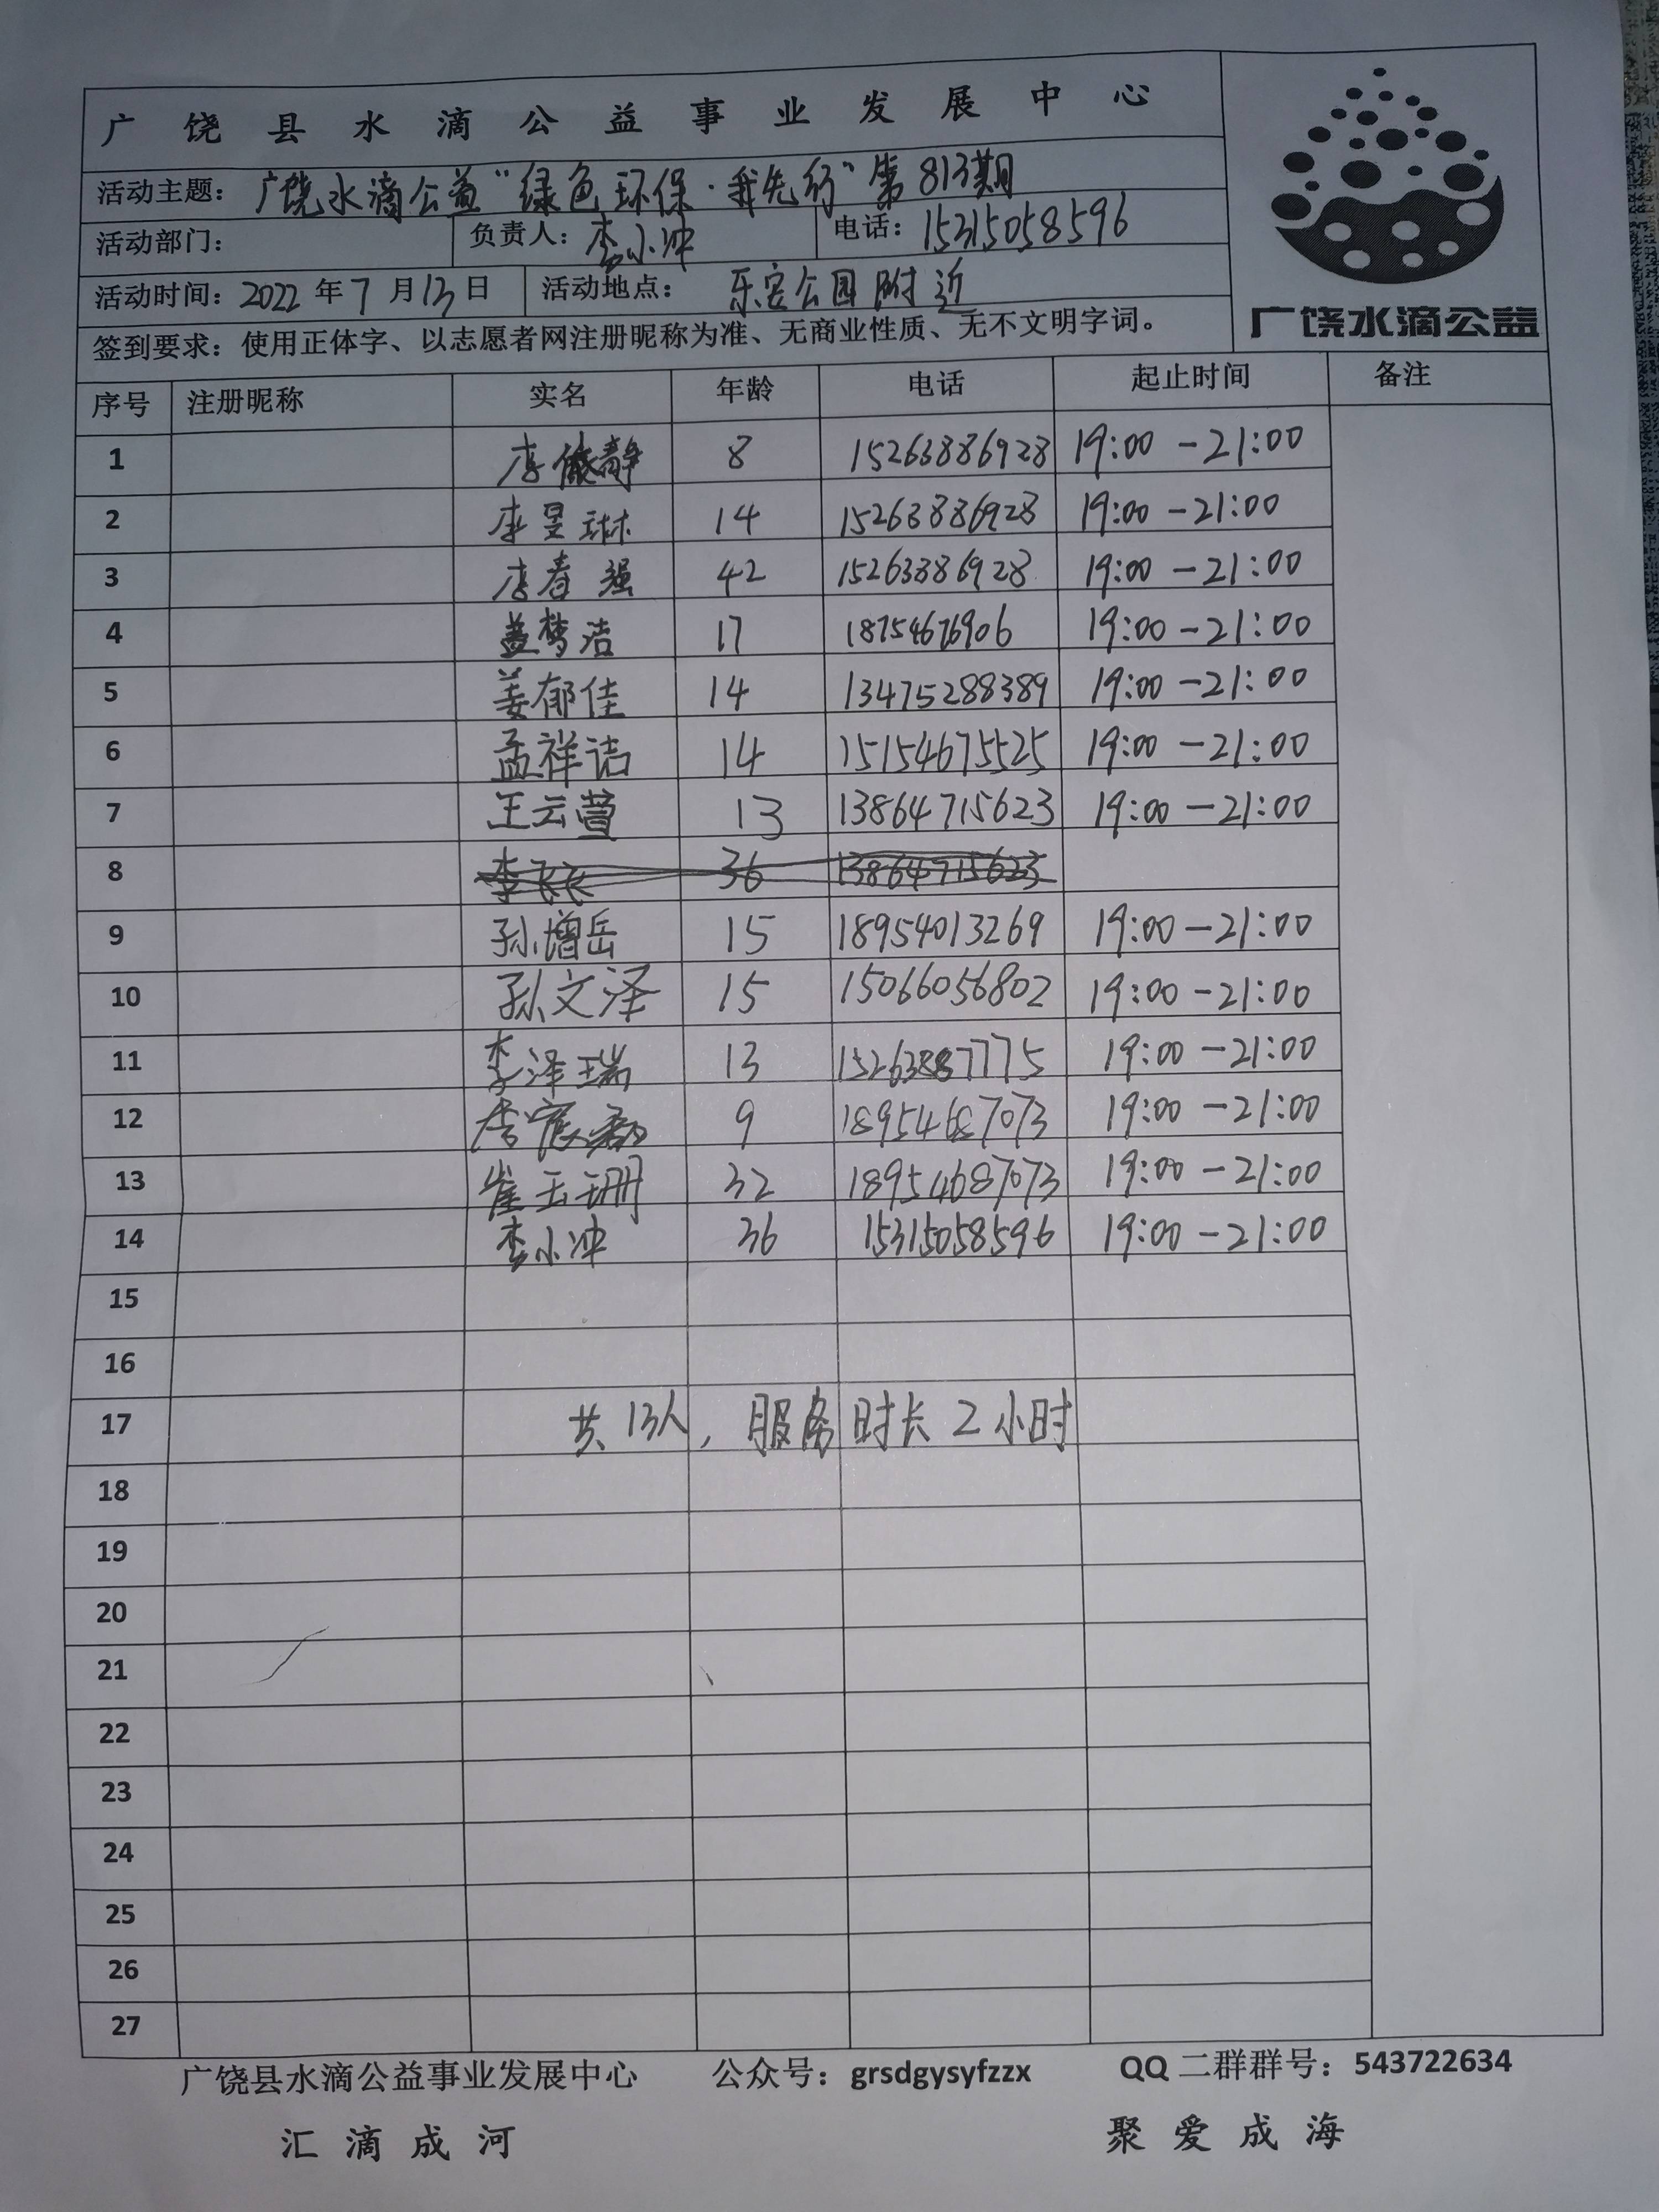 广饶县水滴公益事业发展中心
活动主题：广饶水滴公益“绿色环保·我先行”第813期
活动部门： 负责人：李小冲 电话：15315058596
活动时间：2022年7月13日 活动地点：乐安公园附近
签到要求：使用正体字、以志愿者网注册昵称为准、无商业性质、无不文明字词。
广饶水滴公益
序号 注册昵称 实名 年龄 电话 起止时间 备注
1 李依静 8 15263886928 19:00-21:00
2 李昱琳 14 15263886928 19:00-21:00
3 李春强 42 15263886928 19:00-21:00
4 盖梦洁 17 18754676906 19:00-21:00
5 姜郁佳 14 13475288389 19:00-21:00
6 孟祥诘 14 15154675525 19:00-21:00
7 王云萱 13 13864715623 19:00-21:00
8 36 13864715623
9 孙增岳 15 18954013269 19:00-21:00
10 孙文泽 15 15066056802 19:00-21:00
11 李泽瑞 13 15263887775 19:00-21:00
12 李 9 18954687073 19:00-21:00
13 崔玉珊 32 18954687073 19:00-21:00
14 李小冲 36 15315058596 19:00-21:00
15
16
17 共13人，服务时长2小时
18
19
20
21
22
23
24
25
26
27
广饶县水滴公益事业发展中心 公众号：grsdgysyfzzx QQ二群群号：543722634
汇滴成河 聚爱成海